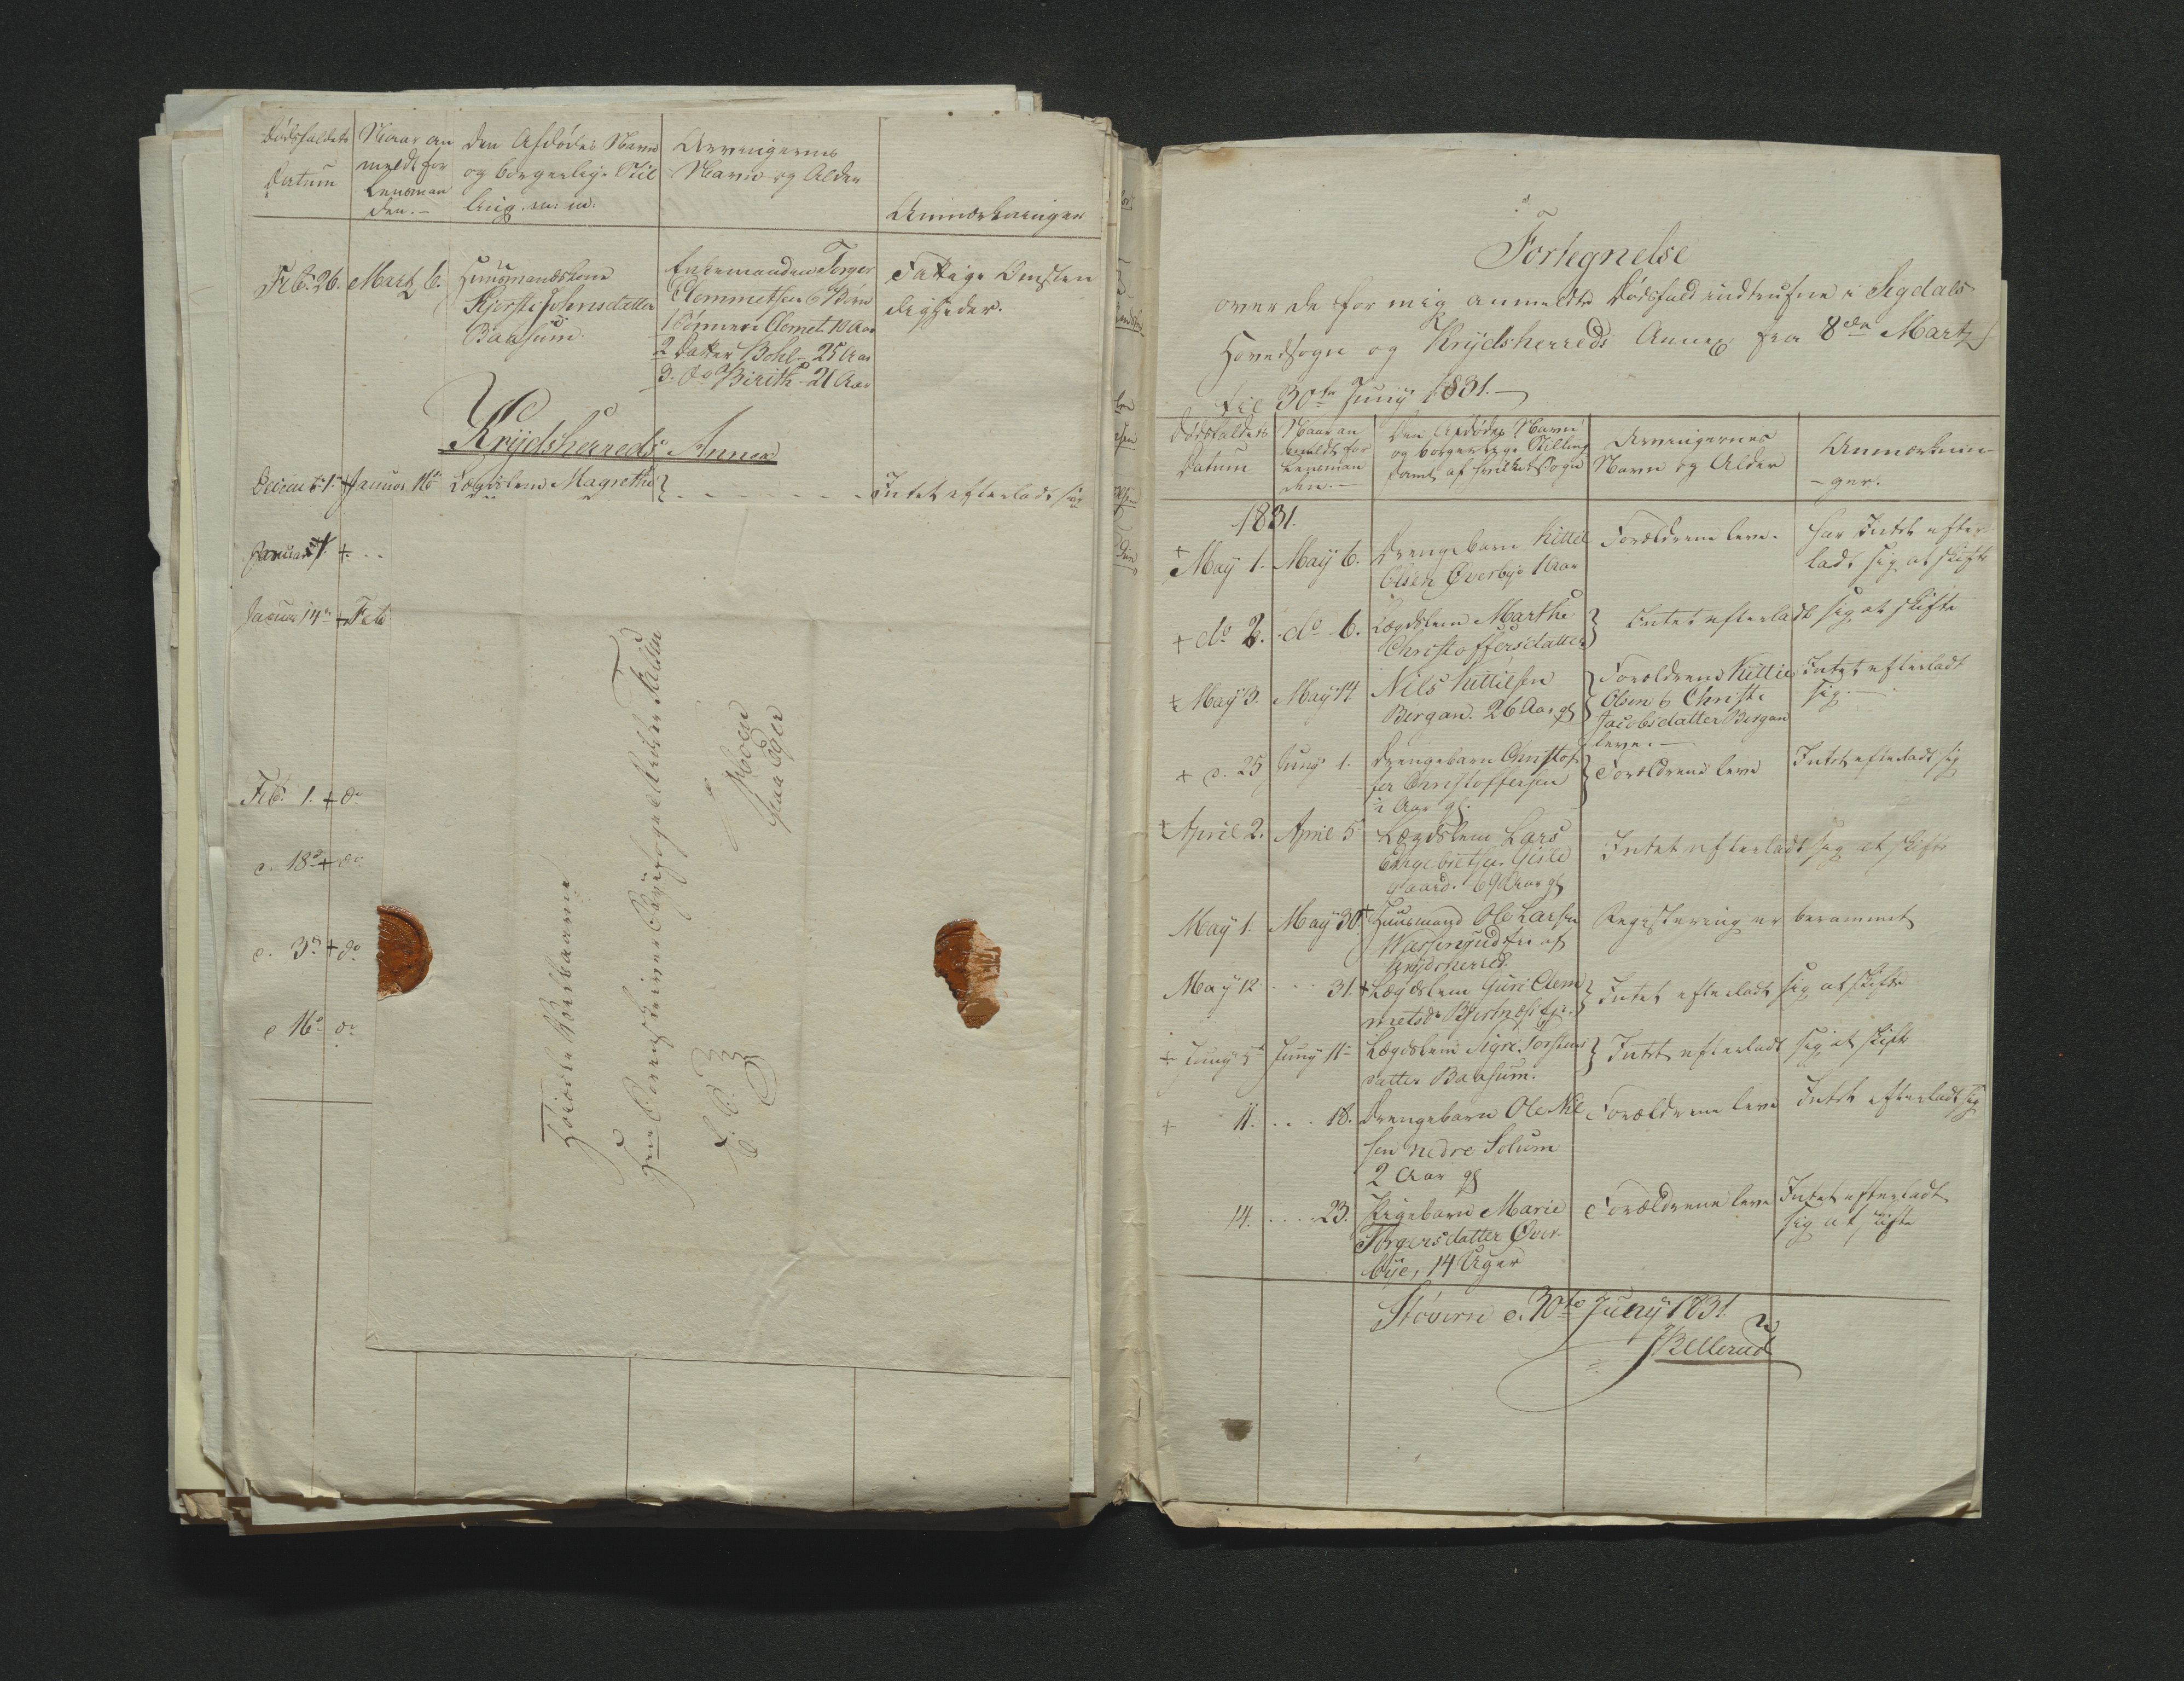 Dødsfaldets
Datum
Naar an
meldt for
Lensman
den.-
Den Afdødes Navn
og borgerlige Stil
ling m: m:
Arvingernes
Navn og Alder
Anmærkninger
Feb. 26.
Martz 6.
Huusmandskone
Kjersti Johnsdatter
Baasum.
Enkemanden Torger
Clemmetsen & Børn
1 Sønnen Clemet 10 Aar
2 Datter Bohl - 25 Aar
3. do Birith - 21 Aar
Fattige Omsten
digheder.
Krydsherreds Annex
Januar 16
Lægdslem Magrethe
Intet efterladt sig
Januar
Januar 14 + Feb
Feb. 1. + do
18 + do
3 + do
16 do
Høiædle Velbaarne
Herr Sorenskriver
Moen
paa Eger
Fortegnelse
over de for mig anmeldte Dødsfald indtrufne i Sigdals
Hovedsogn og Krydsherreds Annex fra 8de Martz
til 30te Juny 1831.
Dødsfaldets
Datum
Naar an
meldt for
Lensman
den.-
Den Afdødes Navn
og borgerlige Stilling
samt af hvilket Sogn
Arvingernes
Navn og Alder
Anmærknin-
-ger.
1831.
+ May 1.
May 6.
Drengebarn Kittil
Olsen Øverbye 1 Aar
Forældrene leve.
har Intet efter
ladt sig at skifte
+ do 2.
do 6.
Lægdslem Marthe
Christoffersdatter
Intet efterladt sig at skifte
+ May 3.
May 14
Nils Kittilsen
Bergan. 26 Aar gl
Forældrene Kittil
Olsen & Christi
Jacobsdatter Bergan
leve.-
Intet efterladt
sig.-
+ d. 25
Juny 1.
Drengebarn Christof
fer Christoffersen
Aar gl.
Forældrene leve
Intet efterladt sig
+ April 2.
April 5
Lægdslem Lars
Engebretsen
gaard. 69 Aar gl
Intet efterladt sig at skifte
May 1.
May 30.
+ Huusmand Ole Larsen
af
Krydsherred.
Registering er berammet
May 12
31.
+ Lægdslem Guri Clem
metsdr
Intet efterladt sig at skifte
+ Juny 5
Juny 11
Lægdslem Sigri Torstens
datter Baasum.
Intet efterladt sig at skifte
+ 11.
18.
Drengebarn Ole Nil
sen nedre Solum
2 Aar gl
Forældrene leve
Intet efterladt sig
14.
23.
Pigebarn Marie
Torgersdatter Øver
bye, 14 Uger
Forældrene leve
Intet efterladt
sig at skifte
Støvern d. 30te Juny 1831.
Bellerud